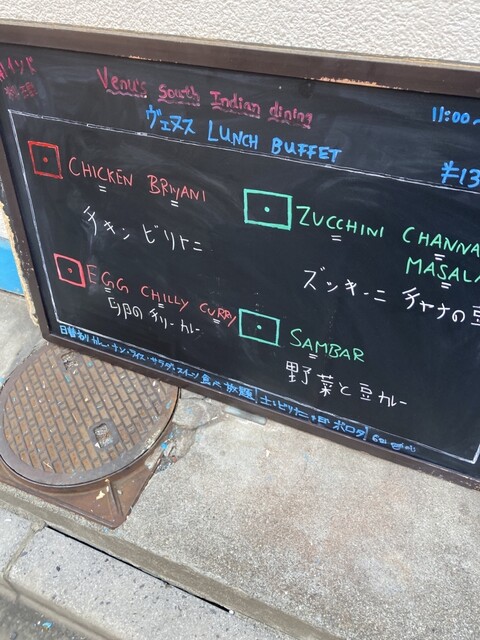 Venu's South Indian dining
ヴェヌス LUNCH BUFFET
11:00~
¥13
CHICKEN BRIYANI
チキン ビリヤニ
ZUCCHINI CHANNA
MASALA
ズッキーニ チャナの豆
EGG CHILLY CURRY
卵のチリーカレー
SAMBAR
野菜と豆カレー
日替りカレー・ナン・ライス・サラダ・スイーツ 食べ放題